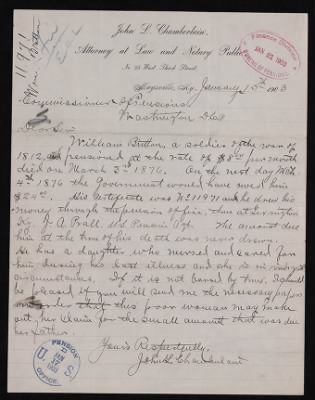 John L. Chamberlain,
Attorney at Law and Notary Public
No 23 West Third Street
Maysville, Ky. January 15th 1903
11971
Wm. Britton
Finance Division
JAN 22 1903
BUREAU OF PENSIONS
Commissioner of Pensions
Washington D.C.
Dear Sir:
William Britton, a soldier of the war of
1812, pensioned at the rate of $8.00 per month
died on March 3rd 1876. On the next day Mch
4th 1876 the Government would have owed him
$24.00. His certificate was No 11971 and he drew his
money through the pension office, then at Lexington
Ky. J. A. Prall, U.S. Pension Agt. The amount due
him at the time of his death was never drawn.
He has a daughter who nursed and cared for
him during his last illness and she is in
circumstances. If it is not barred by time, I should
be pleased if you will send me the necessary papers
that this poor woman may make
out her claim for the small amount that was due
her father.
Yours Respectfully,
John L. Chamberlain
PENSION
JAN 17 1903
U. S.
OFFICE.